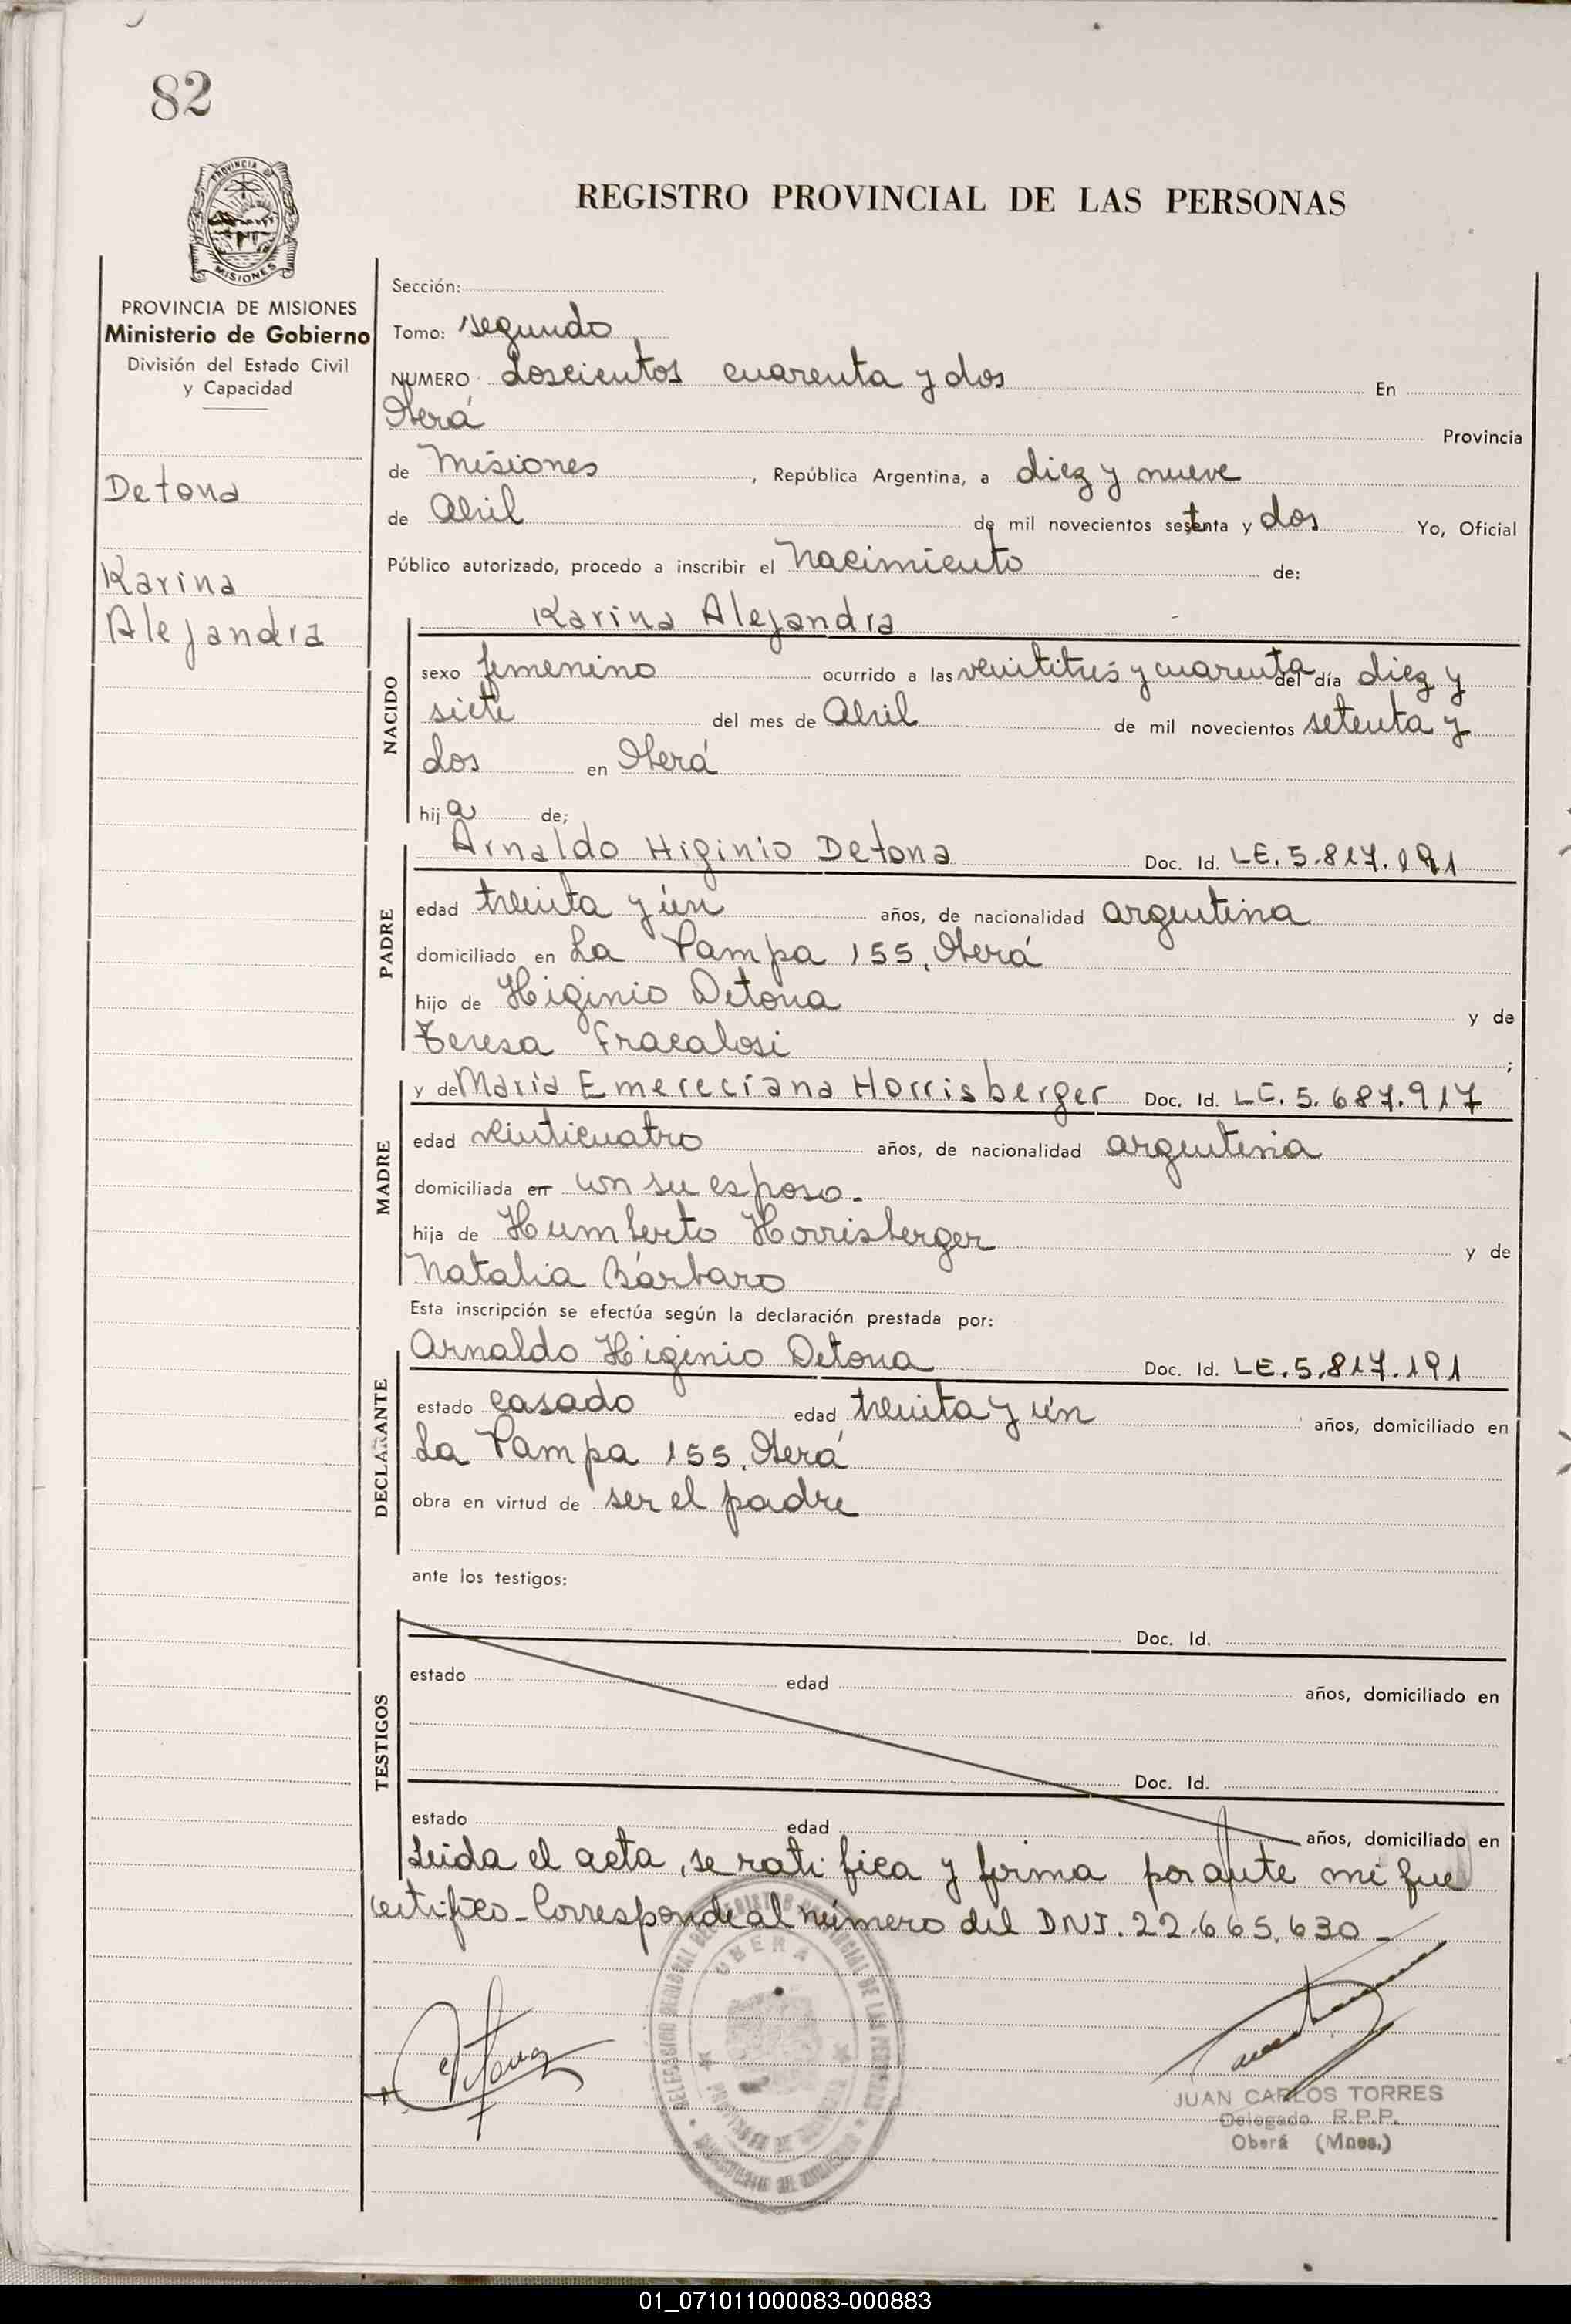 82
PROVINCIA DE
MISIONES
REGISTRO PROVINCIAL DE LAS PERSONAS
PROVINCIA DE MISIONES
Ministerio de Gobierno
División del Estado Civil
y Capacidad
Detona
Karina
Alejandra
Sección:
Tomo: segundo
NUMERO doscientos cuarenta y dos En
Oberá Provincia
de Misiones, República Argentina, a diez y nueve
de Abril de mil novecientos setenta y dos Yo, Oficial
Público autorizado, procedo a inscribir el nacimiento de:
Karina Alejandra
NACIDO
sexo femenino ocurrido a las veintitrés y cuarenta del día diez y
siete del mes de Abril de mil novecientos setenta y
dos en Oberá
hija de;
PADRE
Arnaldo Higinio Detona Doc. Id. LE. 5.817.191
edad treinta y ún años, de nacionalidad argentina
domiciliado en La Pampa 155, Oberá
hijo de Higinio Detona y de
Teresa Fracalosi ;
MADRE
y de María Emereciana Horrisberger Doc. Id. LC. 5.687.917
edad veinticuatro años, de nacionalidad argentina
domiciliada en con su esposo.
hija de Humberto Horrisberger y de
Natalia Bárbaro
Esta inscripción se efectúa según la declaración prestada por:
DECLARANTE
Arnaldo Higinio Detona Doc. Id. LE. 5.817.191
estado casado edad treinta y ún años, domiciliado en
La Pampa 155, Oberá
obra en virtud de ser el padre
ante los testigos:
TESTIGOS
Doc. Id.
estado edad años, domiciliado en
Doc. Id.
estado edad años, domiciliado en
Leida el acta, se ratifica y firma por ante mí que
certifico - Corresponde al número del DNI. 22.665.630 -
Detona
OBERA
JUAN CARLOS TORRES
Delegado R.P.P.
Oberá (Mnes.)
01_071011000083-000883